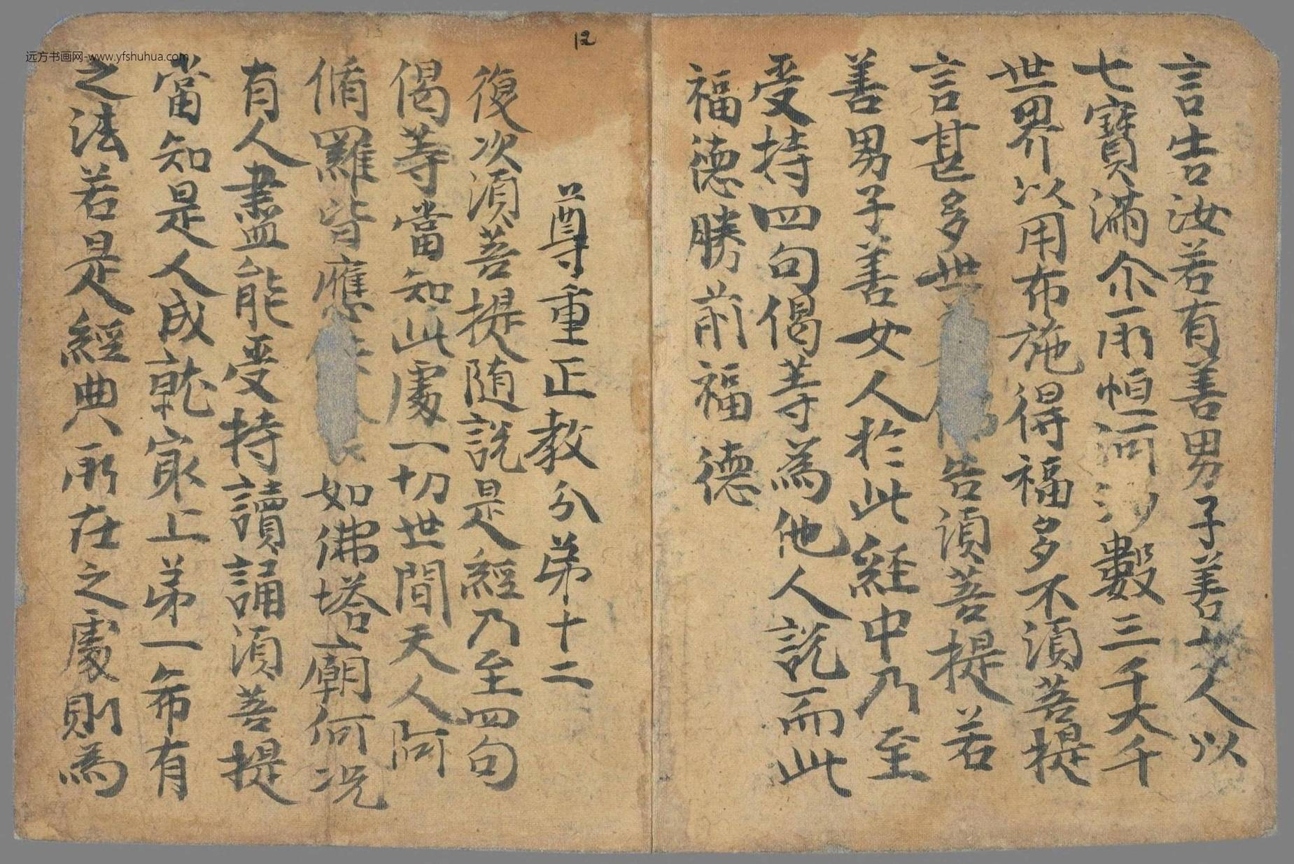 言告汝若有善男子善女人以
七寶滿尒所恒河沙數三千大千
世界以用布施得福多不須菩提
言甚多世告須菩提若
善男子善女人於此經中乃至
受持四句偈等為他人說而此
福德勝前福德
尊重正教分弟十二
復次須菩提随說是經乃至四句
偈等當知此處一切世間天人阿
脩羅皆應如佛塔廟何況
有人盡能受持讀誦須菩提
當知是人成就冣上弟一希有
之法若是經典所在之處則為
12
远方书画网-www.yfshuhua.com